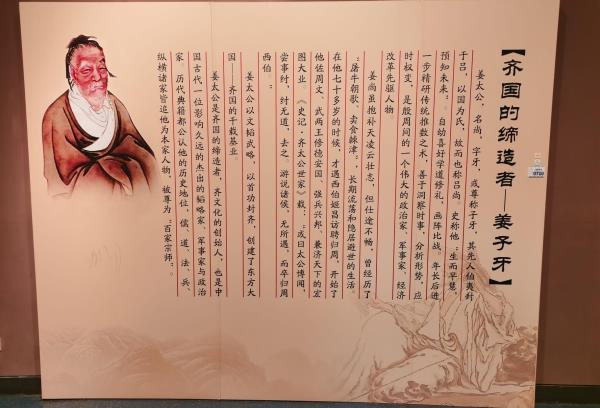 【齐国的缔造者—姜子牙】
姜太公，名尚，字牙，或尊称子牙，其先人伯夷封
于吕，以国为氏，故而也称吕尚。史称他“生而早慧，
预知未来”。自幼喜好学道修礼，画阵比战。年长后进
一步精研传统推数之术，善于洞察时事，分析形势，应
时权变，是殷周间的一个伟大的政治家、军事家、经济
改革先驱人物
姜尚虽抱补天凌云壮志，但仕途不畅，曾经历了
“屠牛朝歌，卖食棘津”，长期流荡和隐居避世的生活。
在他七十多岁的时候，才遇西伯姬昌访聘归周，开始了
他佐周文、武两王修德安国、强兵兴邦、兼济天下的宏
图大业。《史记·齐太公世家》载：“或曰太公博闻，
尝事纣，纣无道，去之。游说诸侯，无所遇，而卒归周
西伯。”
姜太公以文韬武略，以首功封齐，创建了东方大
国——齐国的千载基业
姜太公是齐国的缔造者，齐文化的创始人，也是中
国古代一位影响久远的杰出的韬略家、军事家与政治
家。历代典籍都公认他的历史地位，儒、道、法、兵、
纵横诸家皆追他为本家人物，被尊为“百家宗师”。